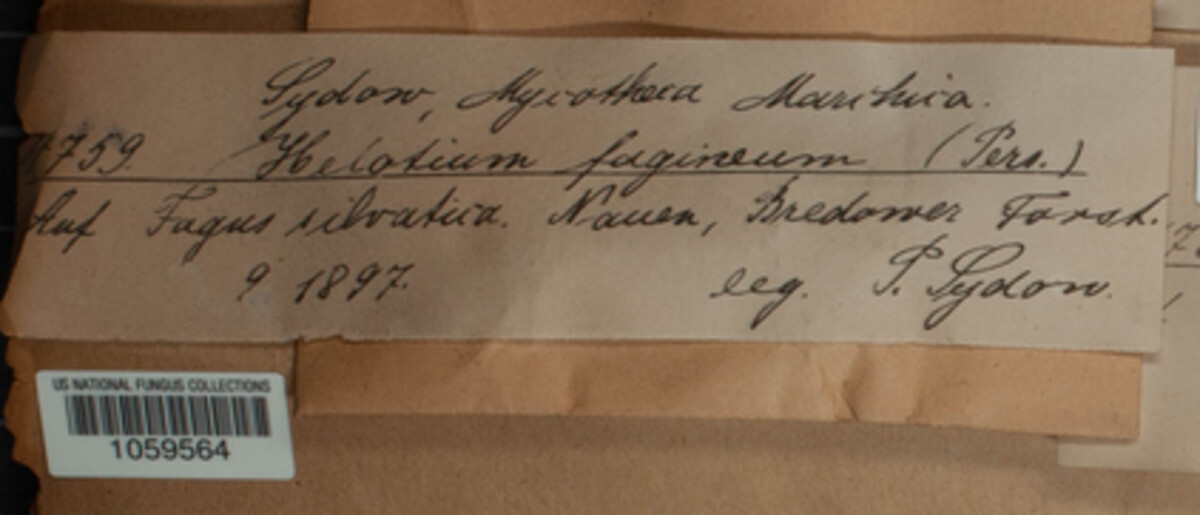 Sydow, Mycotheca Marchica.
4759. Helotium fagineum (Pers.)
Auf Fagus silvatica. Nauen, Bredower Forst.
9 1897. leg. P. Sydow.
US NATIONAL FUNGUS COLLECTIONS
1059564